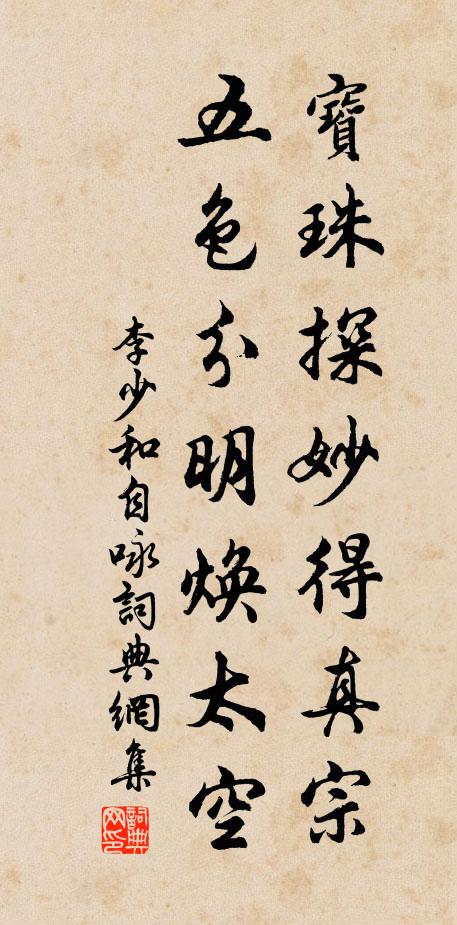 寶珠探妙得真宗
五色分明煥太空
李少和自咏詞典網集
詞典
网印